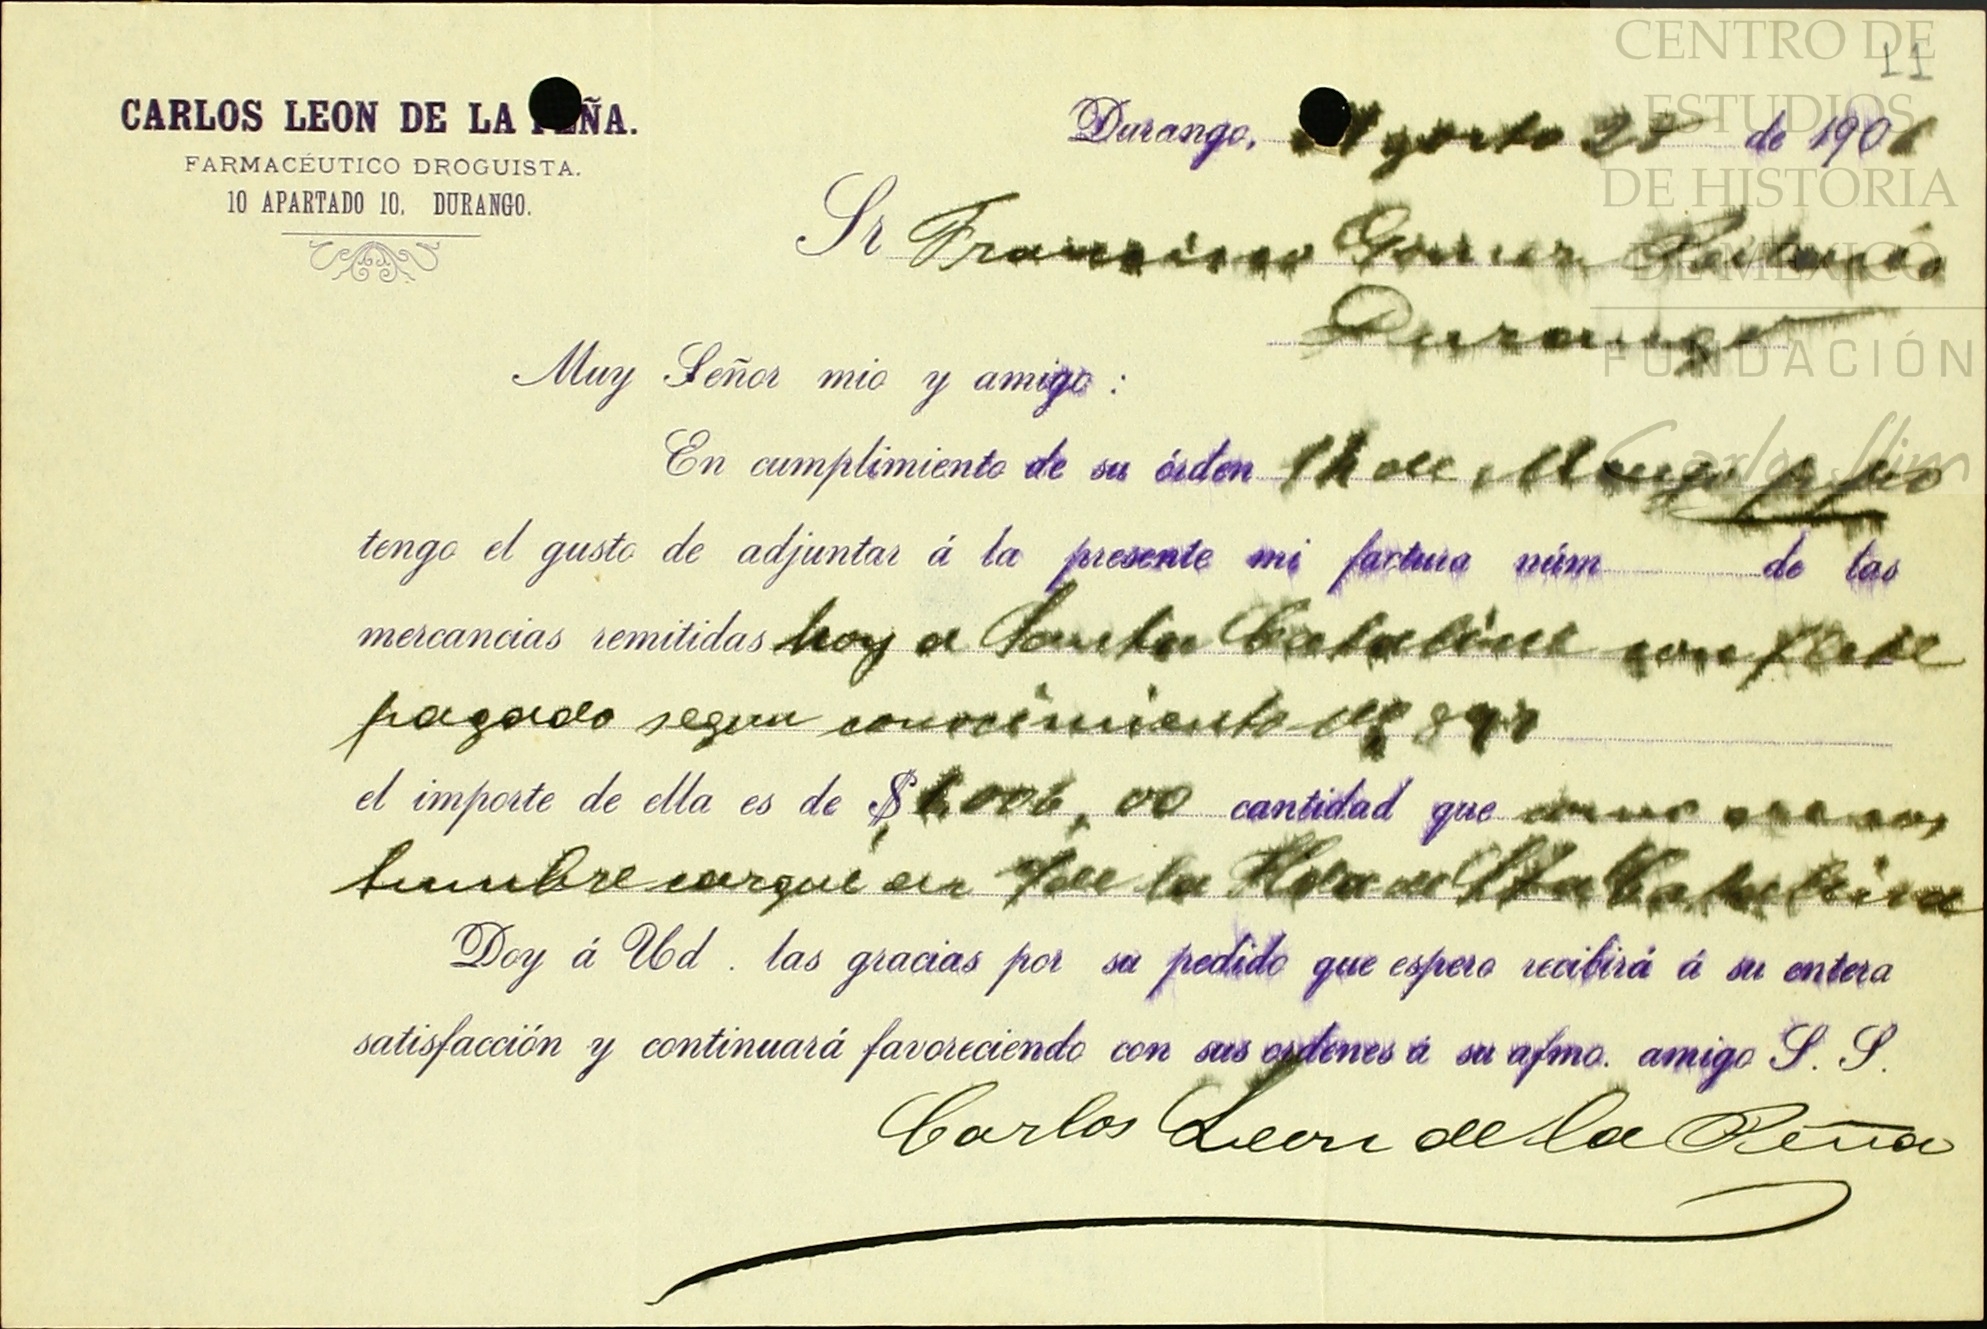 CENTRO DE
ESTUDIOS
DE HISTORIA
DE MÉXICO
FUNDACIÓN
Carlos Slim
11
CARLOS LEON DE LA PEÑA.
FARMACÉUTICO DROGUISTA.
10 APARTADO 10. DURANGO.
Durango, Agosto 25 de 1906
Sr Francisco Gomez Palacio
Durango
Muy Señor mio y amigo:
En cumplimiento de su órden de Mayo
tengo el gusto de adjuntar á la presente mi factura núm de las
mercancias remitidas hoy a Santa Catalina con flete
pagado segun conocimiento
el importe de ella es de $ cantidad que como
tumbre cargué en de la Hda de Sta Catalina
Doy á Ud. las gracias por su pedido que espero recibirá á su entera
satisfacción y continuará favoreciendo con sus ordenes á su afmo. amigo S. S.
Carlos Leon de la Peña